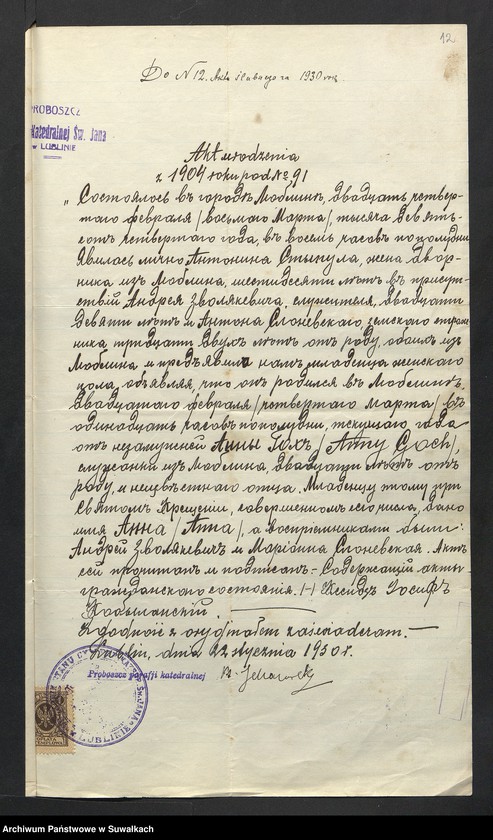 12
Do N 12. Aktu ślubnego za 1930 rok.
PROBOSZCZ
Katedralnej Św. Jana
w LUBLINIE
Akt urodzenia
z 1904 roku pod № 91
„Состоялось въ городѣ Люблинѣ, двадцать четвер-
таго февраля /восьмаго Марта/, тысяча девять-
сотъ четвертаго года, въ восемь часовъ пополудни
Явилась лично Антонина Стикула, жена двор-
ника изъ Люблина, шестидесяти лѣтъ въ присут-
ствіи Андрея Зволякевича, служителя, двадцати
девяти лѣтъ и Антона Слоневскаго, земского страж-
ника тридцати двухъ лѣтъ отъ роду, обоихъ изъ
Люблина и предъявила намъ младенца женскаго
пола, объявляя, что онъ родился въ Люблинѣ,
двадцатаго февраля /четвертаго марта/ въ
одинадцать часовъ пополудни, текущаго года
отъ незамужней Анны Гохъ /Anny Goch/,
служанки изъ Люблина, двадцати лѣтъ отъ
роду, и неизвѣстнаго отца. Младенцу этому при
Святомъ Крещеніи, совершенномъ сего числа, дано
имя Анна /Anna/, а воспріемниками были:
Андрей Зволякевичъ и Маріанна Слоневская. Актъ
сей прочитанъ и подписанъ. Содержащій акты
гражданскаго состоянія. /-/ Ксендзъ Іосифъ
Zgodność z oryginałem zaświadczam.
Lublin, dnia 22 stycznia 1930 r.
Proboszcz parafji katedralnej
W LUBLINIE
Archiwum Państwowe w Suwałkach